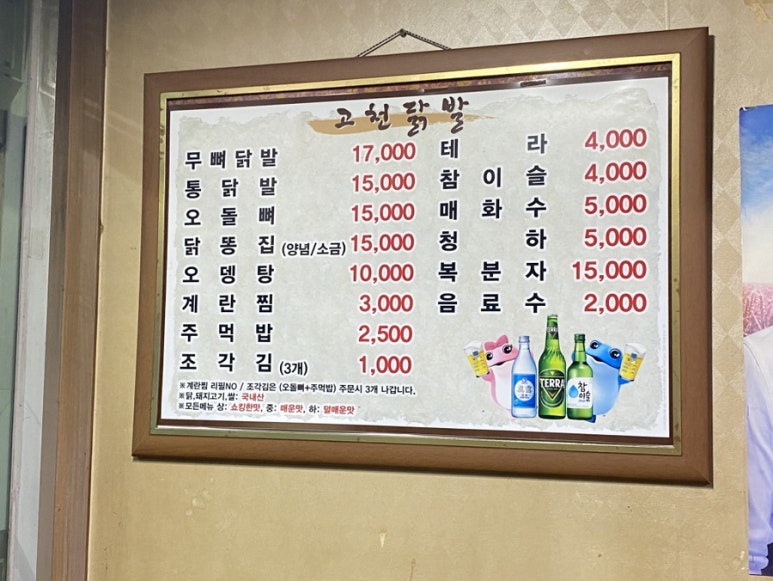 고천닭발
무뼈닭발 17,000
통닭발 15,000
오돌뼈 15,000
닭똥집 (양념/소금) 15,000
오뎅탕 10,000
계란찜 3,000
주먹밥 2,500
조각김 (3개) 1,000
※계란찜 리필NO / 조각김은 (오돌뼈+주먹밥) 주문시 3개 나갑니다.
※닭,돼지고기,쌀: 국내산
※모든메뉴 상: 쇼킹한맛, 중: 매운맛, 하: 덜매운맛
테라 4,000
참이슬 4,000
매화수 5,000
청하 5,000
복분자 15,000
음료수 2,000
TERRA
참이슬